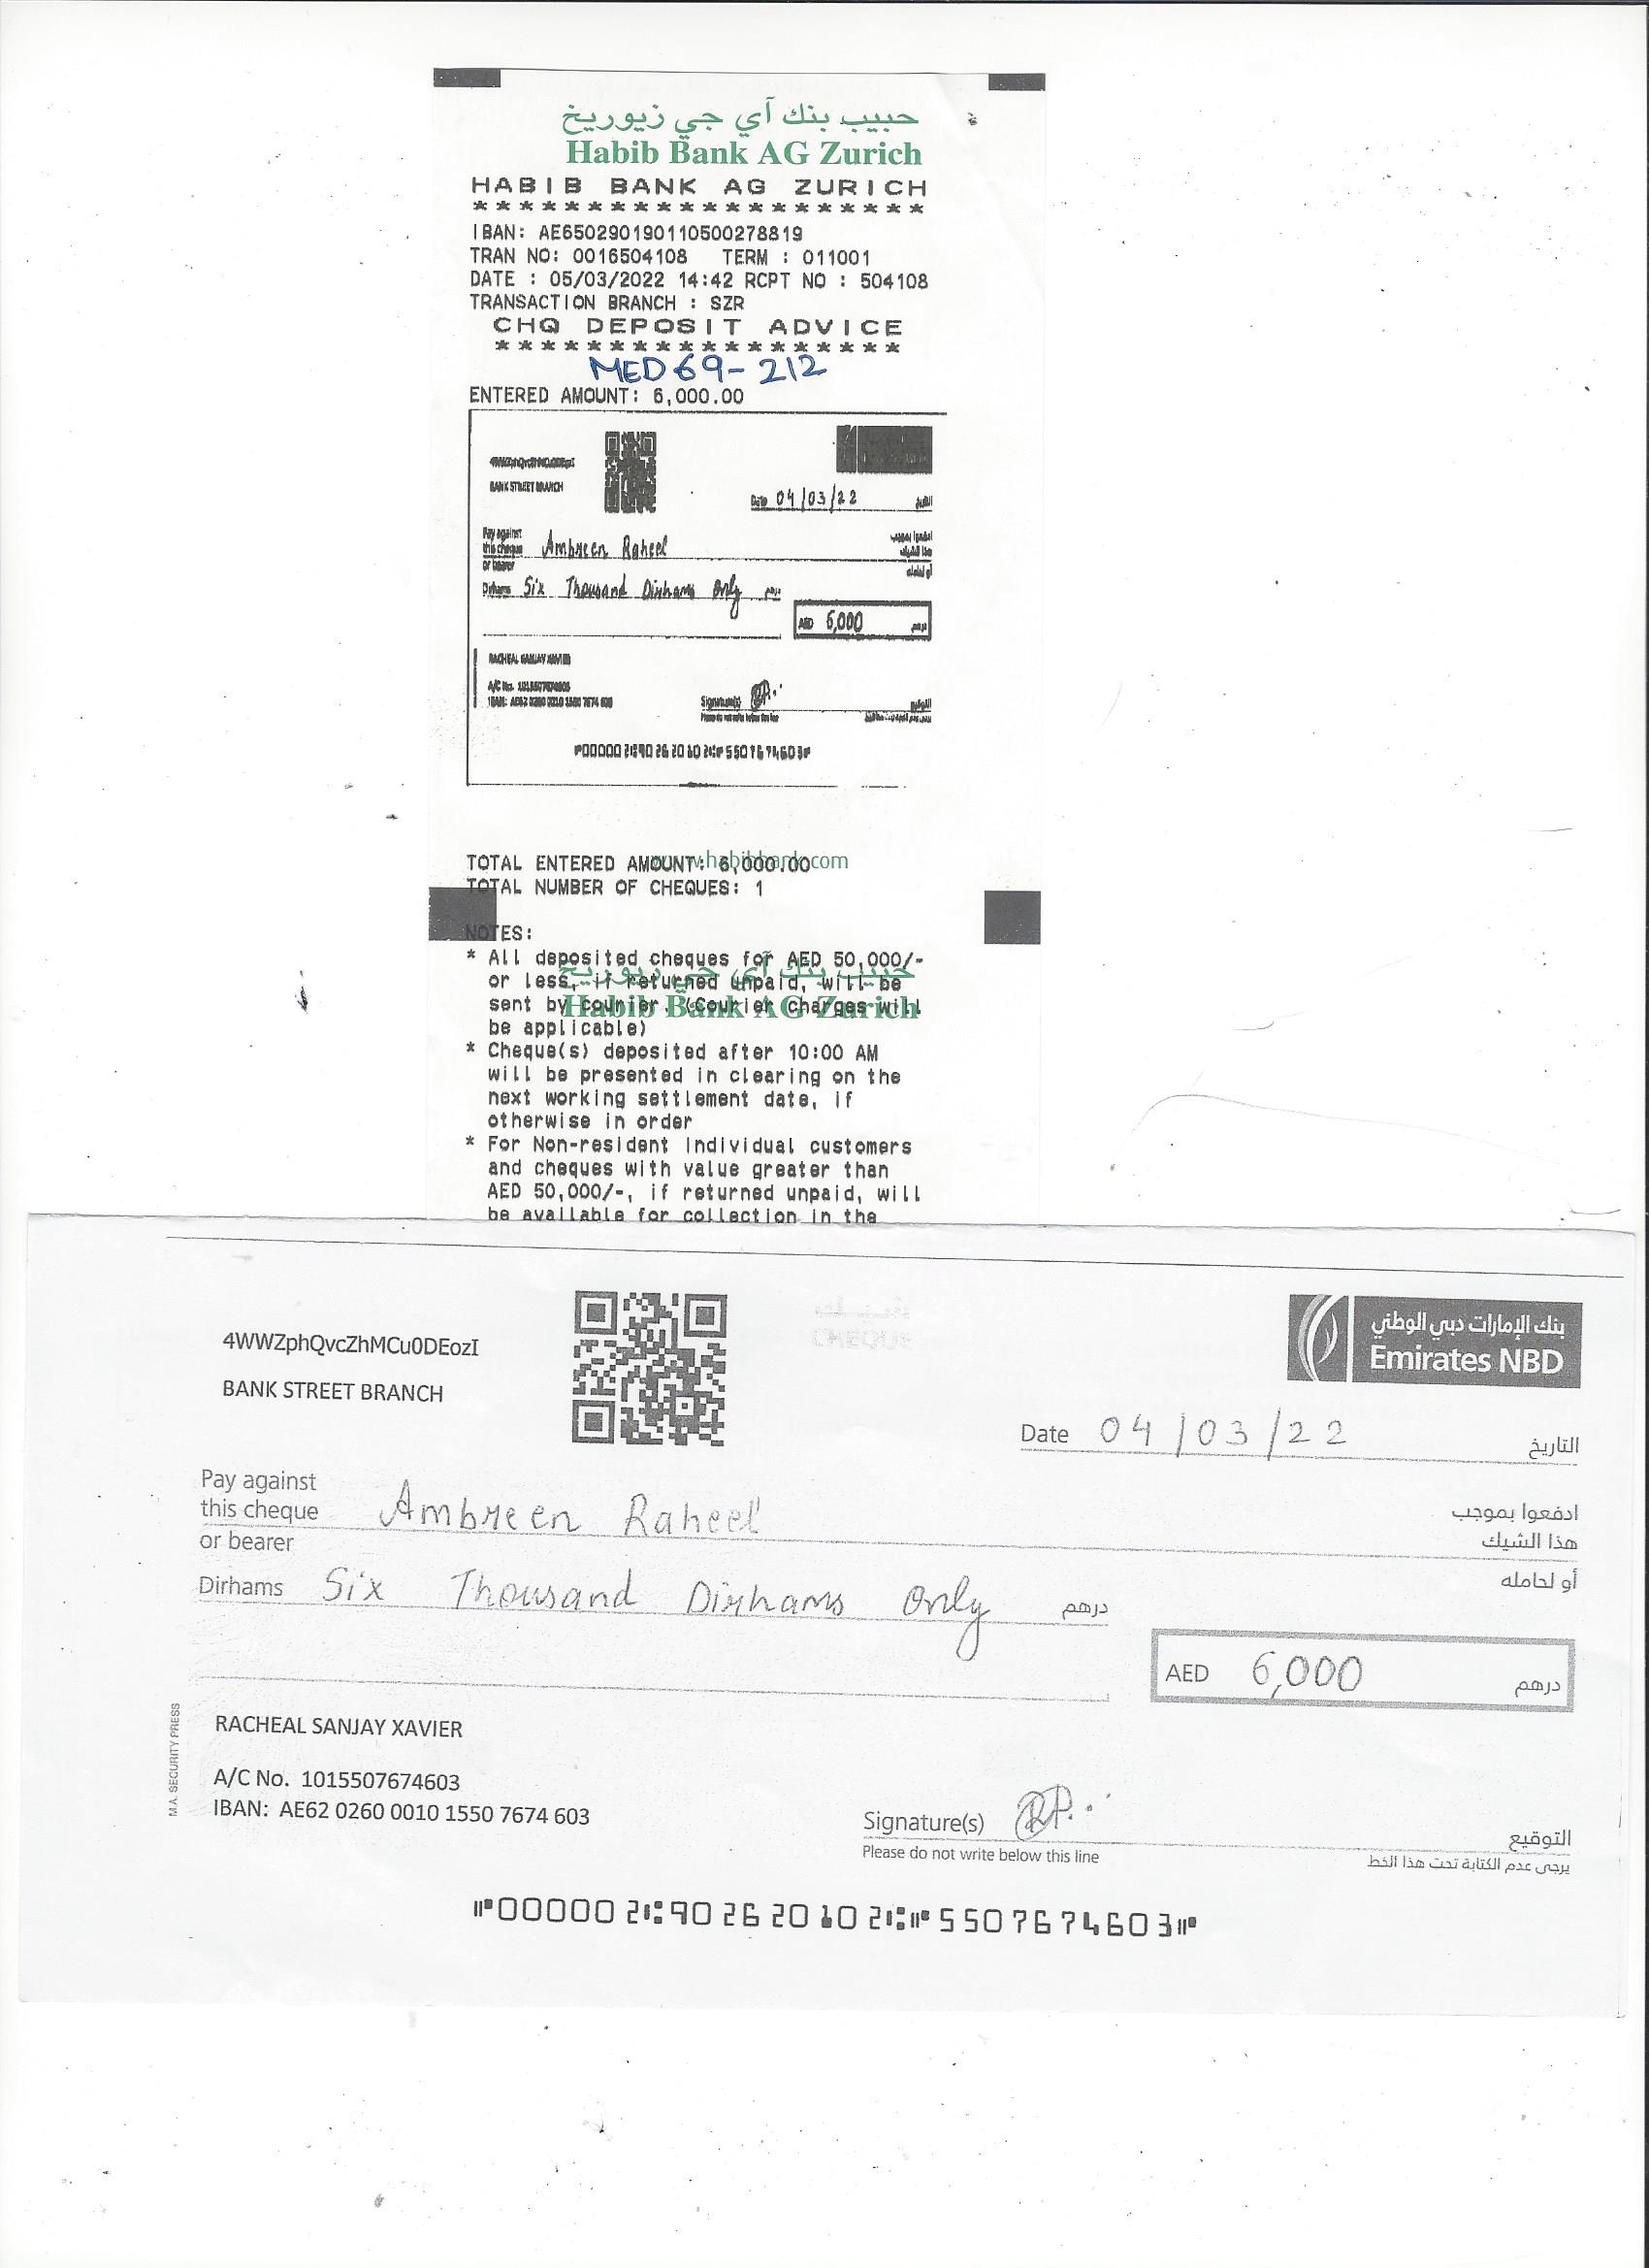 حبيب بنك آي جي زيوريخ
Habib Bank AG Zurich
HABIB BANK AG ZURICH
* * * * * * * * * * * * * * * * * * * *
IBAN: AE650290190110500278819
TRAN NO: 0016504108 TERM : 011001
DATE : 05/03/2022 14:42 RCPT NO : 504108
TRANSACTION BRANCH : SZR
CHQ DEPOSIT ADVICE
* * * * * * * * * * * * * * * * * *
MED69-212
ENTERED AMOUNT: 6,000.00
BANK STREET BRANCH
Date 04/03/22 التاريخ
Pay against
this cheque Ambreen Raheel
or bearer
ادفعوا بموجب
هذا الشيك
أو لحامله
Dirhams Six Thousand Dirhams Only درهم
AED 6,000 درهم
RACHEAL SANJAY XAVIER
A/C No. 1015507674603
IBAN: AE62 0260 0010 1550 7674 603
Signature(s) التوقيع
Please do not write below this line
⑈000002⑆902620102⑆⑈5507674603⑈
www.habibbank.com
TOTAL ENTERED AMOUNT: 6,000.00
TOTAL NUMBER OF CHEQUES: 1
NOTES:
* All deposited cheques for AED 50,000/-
حبيب بنك آي جي زيوريخ
or less, if returned unpaid, will be
Habib Bank AG Zurich
sent by courier. (Courier charges will
be applicable)
* Cheque(s) deposited after 10:00 AM
will be presented in clearing on the
next working settlement date, if
otherwise in order
* For Non-resident Individual customers
and cheques with value greater than
AED 50,000/-, if returned unpaid, will
be available for collection in the
4WWZphQvcZhMCu0DEozI
BANK STREET BRANCH
CHEQUE
بنك الإمارات دبي الوطني
Emirates NBD
Date 04/03/22 التاريخ
Pay against
this cheque Ambreen Raheel
or bearer
ادفعوا بموجب
هذا الشيك
أو لحامله
Dirhams Six Thousand Dirhams Only درهم
AED 6,000 درهم
M.A. SECURITY PRESS
RACHEAL SANJAY XAVIER
A/C No. 1015507674603
IBAN: AE62 0260 0010 1550 7674 603
Signature(s) التوقيع
Please do not write below this line يرجى عدم الكتابة تحت هذا الخط
⑈000002⑆902620102⑆⑈5507674603⑈